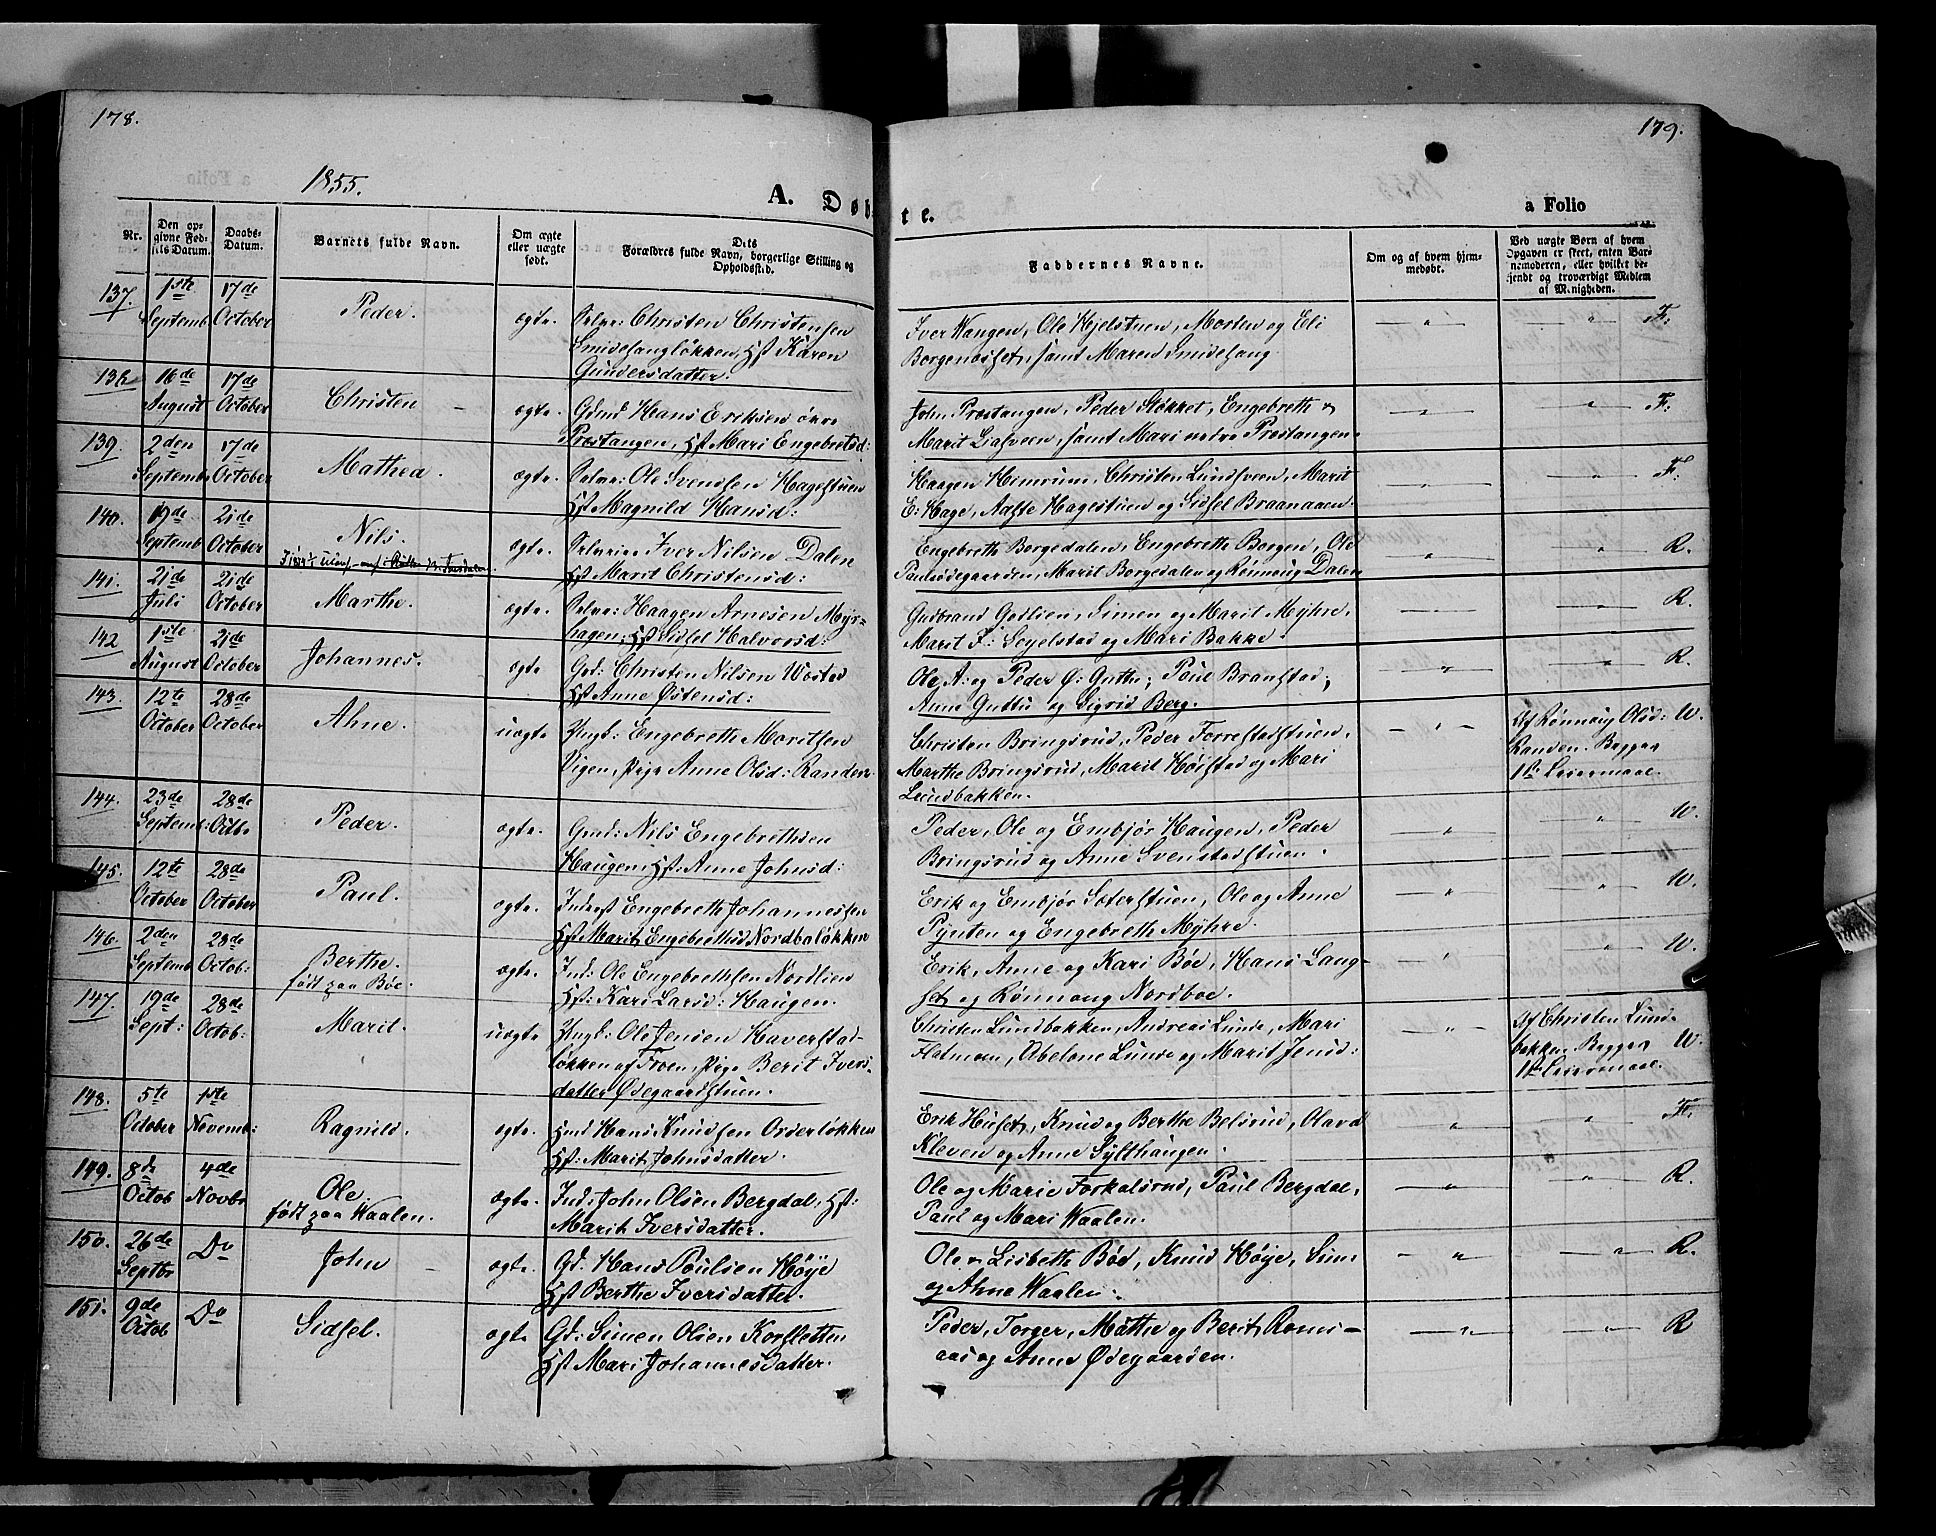 178.
179.
1855.
A. Døbte.
a Folio
Nr.
Den opgivne Fødsels Datum.
Daabs-Datum.
Barnets fulde Navn.
Om ægte eller uægte født.
Forældres fulde Navn, borgerlige Stilling og Opholdssted.
Faddernes Navne.
Om og af hvem hjemmedøbt.
Ved uægte Børn af hvem Opgaven er skeet, enten Barnemoderen, eller hvilket bekjendt og troværdigt Medlem af Menigheden.
137. 1ste Septemb 17de October Peder. ægte. Christen Christensen
Smidesangløkken, Hst Karen
Gundersdatter:
Iver Vangen, Ole Hjelstuen, Morten og Eli
Borgenoset, samt Maren Smidesang
F:
138 16de August 17de October Christen ægte. Gdmd Hans Eriksen øvre
Prestangen, Hst Mari Engebretsd:
John Prestangen, Peder Støkket, Engebreth &
Marit Liasveen, samt Mari nedre Prestangen.
F:
139. 2den Septemb 17de October Mathea. ægte. Ole Svendsen Hagestuen
Hst Magnild Hansd:
Haagen Hemrum, Christen Lundsveen, Marit
E: Hage, Aaste Hagestuen og Sidsel Braanaaen.
F:
140. 19de Septemb 21de October Nils. ægte. Iver Nilsen Dalen
Hst Marit Christensd:
Engebreth Borgedalen, Engebreth Borgen, Ole
Paulsødegaarden, Marit Borgedalen og Rønnaug Dalen
R.
141. 21de Juli 21de October Marthe. ægte. Haagen Arnesen Myr-
hagen, Hst Sidsel Halvorsd:
Gudbrand Godlien, Simen og Marit Myhre,
Marit I: Sejelstad og Mari Bakke.
R.
142 1ste August 21de October Johannes. ægte Gd: Christen Nilsen Wosted
Hst Anne Østensd:
Ole A: og Peder Ø: Guthu; Poul Branstad;
Anne Guttu og Sigrid Berg.
R.
143. 12te October 28de October Ahne. uægte Ungk: Engebreth Moritsen
Vigen, Pige Anne Olsd: Randen.
Christen Bringsrud, Peder Forrestadstuen,
Marthe Bringsrud, Marit Høistad og Mari
Lundbakken.
Af Rønnaug Olsd:
Randen. Begges
1ste Leiermaal.
W.
144. 23de Septemb: 28de Octb. Peder. ægte. Gmd: Nils Engebrethsen
Haugen, Hst: Anne Johnsd:
Peder, Ole og Embjør Haugen, Peder
Bringsrud og Anne Svenstadstuen.
W.
145. 12te October 28de October Paul. ægte. Inderst Engebreth Johannessen
Hst Marit Engebrethsd Nordbaløkken
Erik og Embjør Sæterstuen, Ole og Anne
Pynten og Engebreth Myhre.
W.
146. 2den Septemb 28de Octob: Berthe. ægte. Ind: Ole Engebrethsen Nordlien
født paa Bøe.
Hst: Kari Larsd: Haugen.
Erik, Anne og Kari Bøe, Hans Lang-
set og Rønnaug Nordboe.
W.
147. 19de Sept: 28de Octob: Marit. uægte Ungk: Ole Jensen Haverstad-
løkken af Froen, Pige Berit Ivers-
datter Ødegaardstuen.
Christen Lundbakken, Andreas Lunde, Mari
Flatmoen, Abelone Lunde og Marit Jensd:
Af Christen Lund-
bakken. Begges
1ste Leiermaal.
W.
148. 5te October 1ste Novemb: Ragnild. ægte. Hmd Hans Knudsen Orderløkken
Hst: Marit Johnsdatter.
Erik Huset, Knud og Berthe Belsrud, Olava
Kleven og Anne Sylthaugen.
F.
149. 8de Octob 4de Novbr Ole ægte. Ind: John Olsen Bergdal, Hst:
født paa Waalen.
Marit Iversdatter.
Ole og Marie Forkalsrud, Paul Bergdal,
Paul og Mari Waalen.
R.
150. 26de Septbr Do John ægte. Gd: Hans Poulsen Høye
Hst Berthe Iversdatter.
Ole & Lisbeth Bøe, Knud Høye, Sim:
og Ahne Waalen:
R.
151. 9de Octob Do Sidsel. ægte Gd: Simen Olsen Korsletten
Hst Mari Johannesdatter.
Peder, Torger, Mathe og Berit Roms-
aas og Anne Ødegaarden.
R